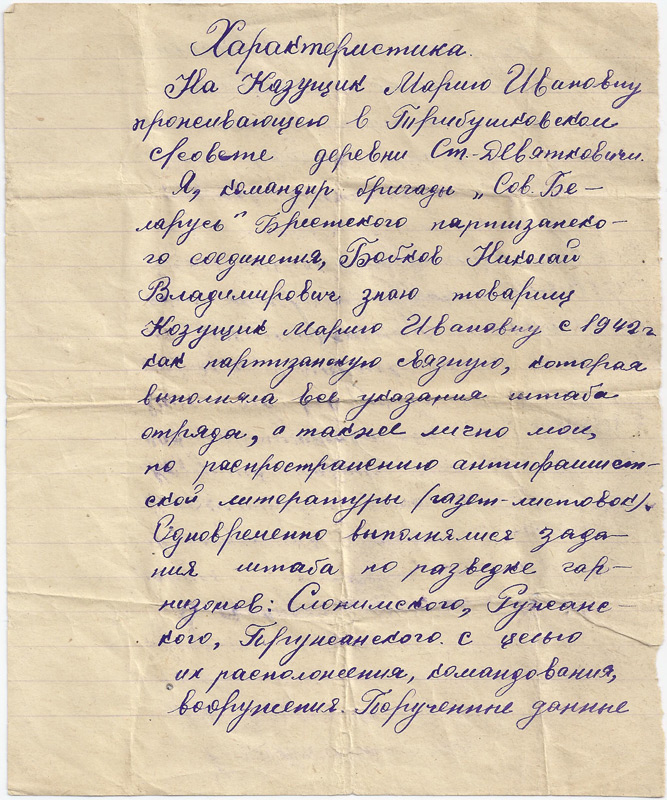 Характеристика.
На Казущик Марию Ивановну
проживающею в Трибушковском
с/совете деревни Ст.-Девятковичи.
Я, командир бригады „Сов. Бе-
ларусь" Брестского партизанско-
го соединения, Бобков Николай
Владимирович знаю товарищ
Козущик Марию Ивановну с 1942 г
как партизанскую связную, которая
выполняла все указания штаба
отряда, а также лично мои,
по распространению антифашист-
ской литературы (газет-листовок).
Одновременно выполнялися зада-
ния штаба по разведке гар-
низонов: Слонимского, Ружанс-
кого, Пружанского. с целью
их расположения, командования,
вооружения. Порученные данные